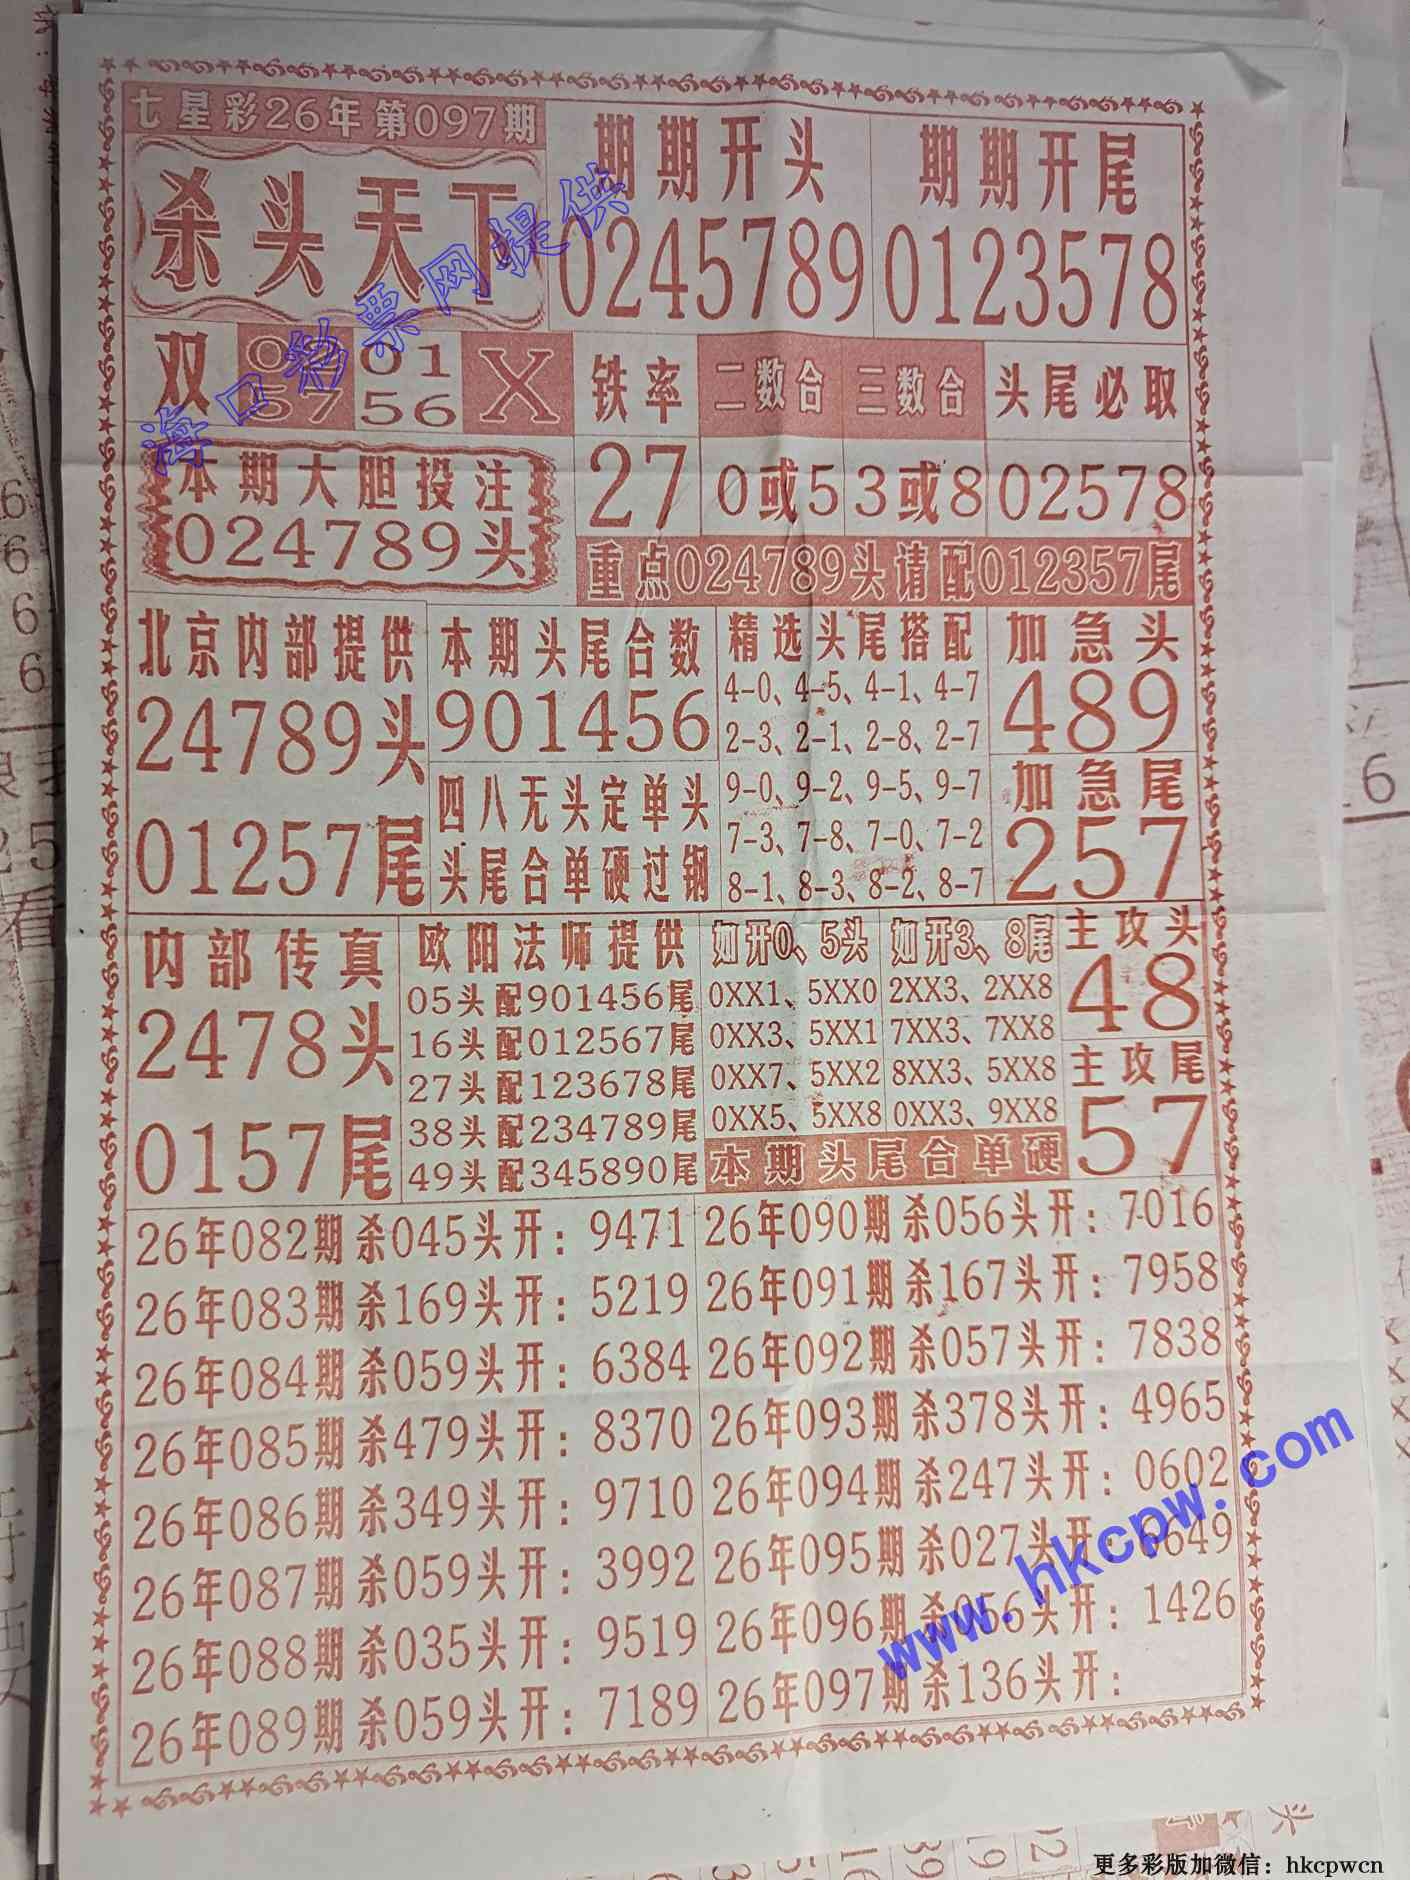 七星彩26年第097期
杀头天下
期期开头
0245789
期期开尾
0123578
双
01
56
X
铁率
27
二数合
0或5
三数合
3或8
头尾必取
02578
本期大胆投注
024789头
重点024789头请配012357尾
北京内部提供
24789头
01257尾
本期头尾合数
901456
四八无头定单头
头尾合单硬过钢
精选头尾搭配
4-0、4-5、4-1、4-7
2-3、2-1、2-8、2-7
9-0、9-2、9-5、9-7
7-3、7-8、7-0、7-2
8-1、8-3、8-2、8-7
加急头
489
加急尾
257
内部传真
2478头
0157尾
欧阳法师提供
05头配901456尾
16头配012567尾
27头配123678尾
38头配234789尾
49头配345890尾
如开0、5头
0XX1、5XX0
0XX3、5XX1
0XX7、5XX2
0XX5、5XX8
如开3、8尾
2XX3、2XX8
7XX3、7XX8
8XX3、5XX8
0XX3、9XX8
本期头尾合单硬
主攻头
48
主攻尾
57
26年082期杀045头开：9471
26年083期杀169头开：5219
26年084期杀059头开：6384
26年085期杀479头开：8370
26年086期杀349头开：9710
26年087期杀059头开：3992
26年088期杀035头开：9519
26年089期杀059头开：7189
26年090期杀056头开：7016
26年091期杀167头开：7958
26年092期杀057头开：7838
26年093期杀378头开：4965
26年094期杀247头开：0602
26年095期杀027头开：6649
26年096期杀056头开：1426
26年097期杀136头开：
海口彩票网提供
www.hkcpw.com
更多彩版加微信：hkcpwcn